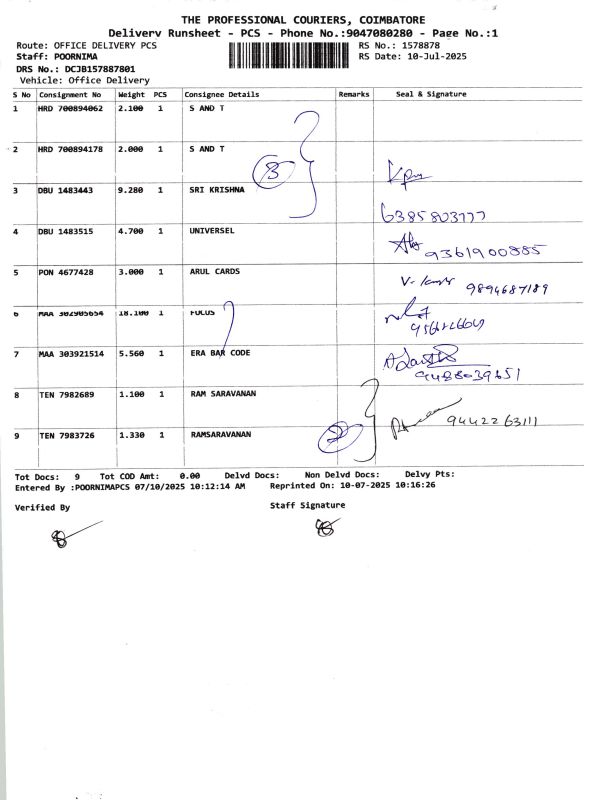 THE PROFESSIONAL COURIERS, COIMBATORE
Delivery Runsheet - PCS - Phone No.:9047080280 - Page No.:1
Route: OFFICE DELIVERY PCS RS No.: 1578878
Staff: POORNIMA RS Date: 10-Jul-2025
DRS No.: DCJB157887801
Vehicle: Office Delivery
S No Consignment No Weight PCS Consignee Details Remarks Seal & Signature
1 HRD 700894062 2.100 1 S AND T
2 HRD 700894178 2.000 1 S AND T
3
3 DBU 1483443 9.280 1 SRI KRISHNA
6385803777
4 DBU 1483515 4.700 1 UNIVERSEL
9361900885
5 PON 4677428 3.000 1 ARUL CARDS
9894687189
6 MAA 302905654 18.100 1 FOCUS
7 MAA 303921514 5.560 1 ERA BAR CODE
9488039651
8 TEN 7982689 1.100 1 RAM SARAVANAN
9442263111
9 TEN 7983726 1.330 1 RAMSARAVANAN
2
Tot Docs: 9 Tot COD Amt: 0.00 Delvd Docs: Non Delvd Docs: Delvy Pts:
Entered By :POORNIMAPCS 07/10/2025 10:12:14 AM Reprinted On: 10-07-2025 10:16:26
Verified By Staff Signature